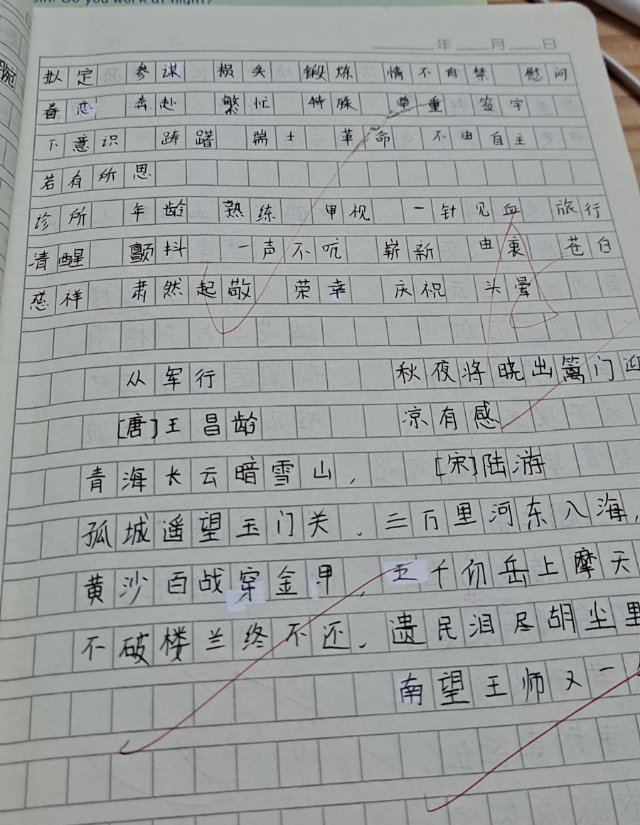 Do you work at night?
年 月 日
拟定 参谋 损失 锻炼 情不自禁 慰问
眷恋 奔赴 繁忙 特殊 尊重 签字
下意识 踌躇 瑞士 革命 不由自主
若有所思
诊所 年龄 熟练 甲视 一针见血 旅行
清醒 颤抖 一声不吭 崭新 由衷 苍白
恙样 肃然起敬 荣幸 庆祝 头晕
从军行
[唐]王昌龄
青海长云暗雪山,
孤城遥望玉门关.
黄沙百战穿金甲,
不破楼兰终不还.
秋夜将晓出篱门迎
凉有感
[宋]陆游
三万里河东入海,
五千仞岳上摩天
遗民泪尽胡尘里
南望王师又一